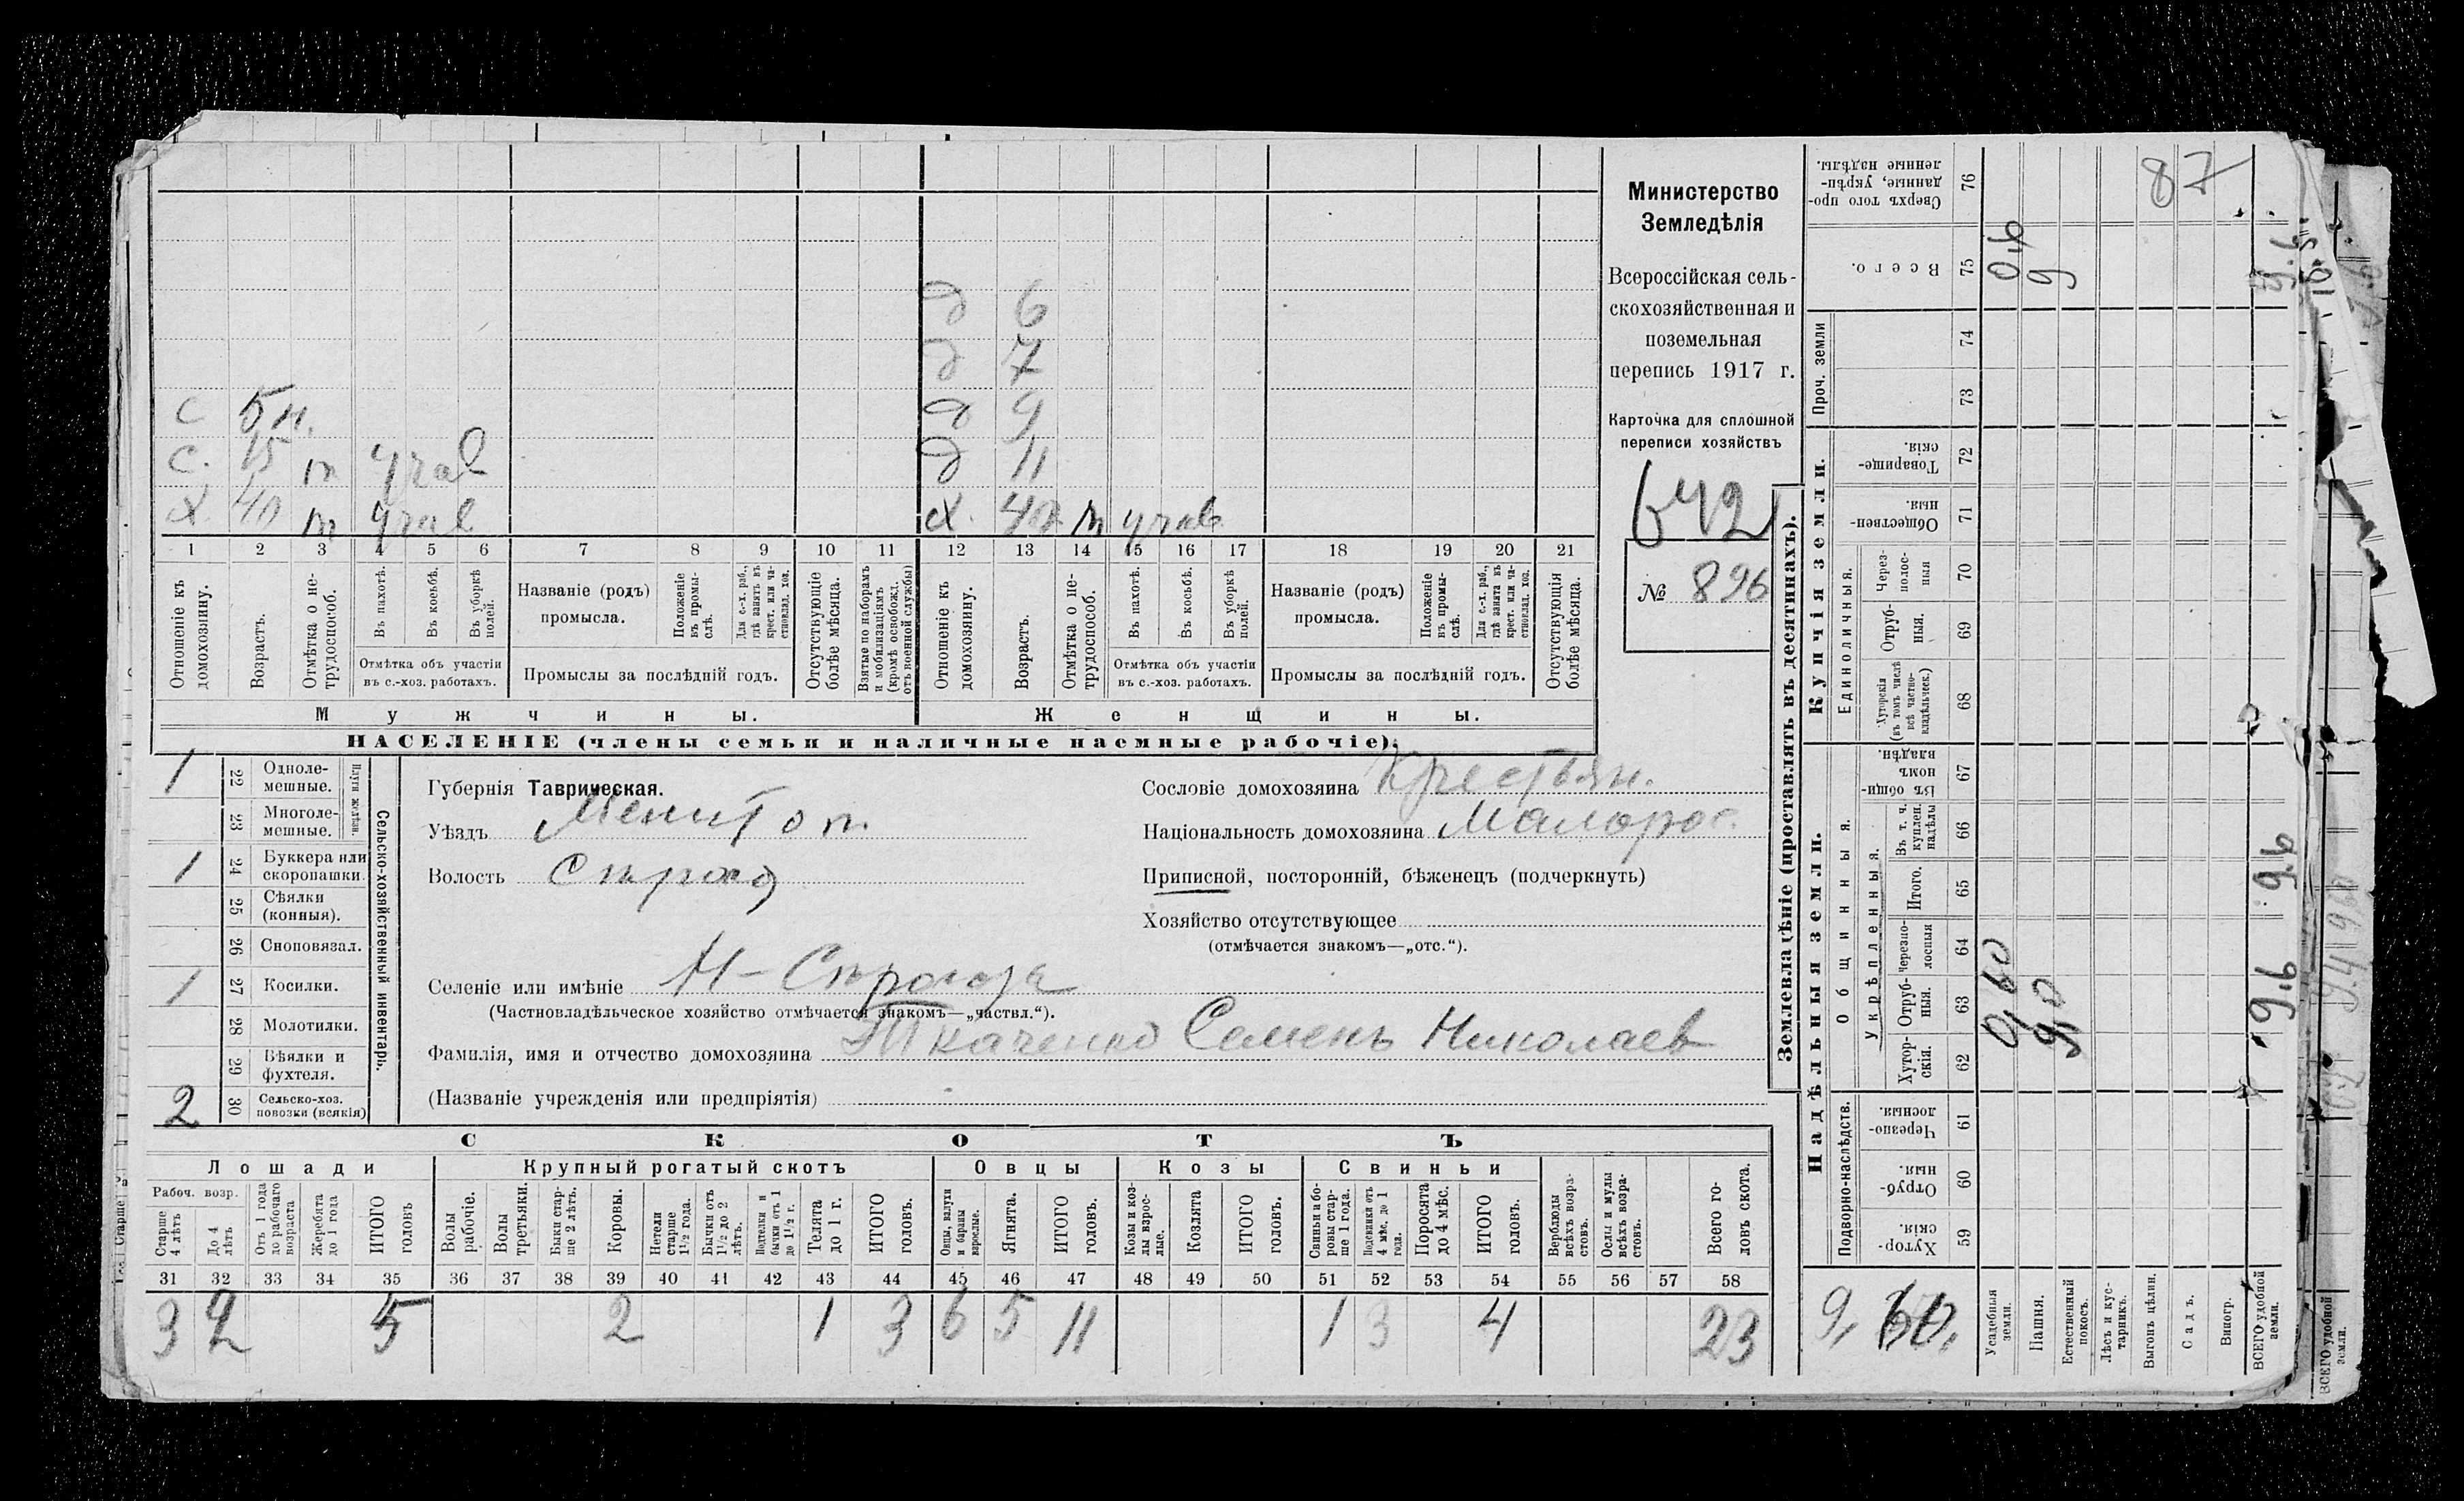 д 6
д 7
с 5 м. д 9
с. 15 т учав д 11
х. 40 т учав х. 40 т учав
1 2 3 4 5 6 7 8 9 10 11 12 13 14 15 16 17 18 19 20 21
Отношеніе къ домохозяину.
Возрастъ.
Отмѣтка о не-трудоспособ.
Въ пахотѣ.
Въ косьбѣ.
Въ уборкѣ полей.
Отмѣтка объ участіи
въ с.-хоз. работахъ.
Названіе (родъ)
промысла.
Положеніе въ промы-слѣ.
Для с.-х. раб., гдѣ занятъ въ крест. или ча-стновлад. хоз.
Промыслы за послѣдній годъ.
Отсутствующіе болѣе мѣсяца.
Взятые по наборамъ и мобилизаціямъ (кромѣ освобожд. отъ военной службы)
Отношеніе къ домохозяину.
Возрастъ.
Отмѣтка о не-трудоспособ.
Въ пахотѣ.
Въ косьбѣ.
Въ уборкѣ полей.
Отмѣтка объ участіи
въ с.-хоз. работахъ.
Названіе (родъ)
промысла.
Положеніе въ промы-слѣ.
Для с.-х. раб., гдѣ занята въ крест. или ча-стновлад. хоз.
Промыслы за послѣдній годъ.
Отсутствующія болѣе мѣсяца.
Мужчины.
Женщины.
НАСЕЛЕНІЕ (члены семьи и наличные наемные рабочіе).
Министерство
Земледѣлія
Всероссійская сель-
скохозяйственная и
поземельная
перепись 1917 г.
Карточка для сплошной
переписи хозяйствъ
642
№ 896
1 22 Одноле-мешные.
23 Многоле-мешные.
Плуги желѣзн.
1 24 Буккера или скоропашки.
25 Сѣялки (конныя).
26 Сноповязал.
1 27 Косилки.
28 Молотилки.
29 Вѣялки и фухтеля.
2 30 Сельско-хоз. повозки (всякія)
Сельско-хозяйственный инвентарь.
Губернія Таврическая.
Уѣздъ Мелитоп.
Волость Строг
Селеніе или имѣніе Н-Строгоза
(Частновладѣльческое хозяйство отмѣчается знакомъ—„частвл.“).
Фамилія, имя и отчество домохозяина Ткаченко Семенъ Николаев
(Названіе учрежденія или предпріятія)
Сословіе домохозяина Крестьян.
Національность домохозяина Малорос.
Приписной, посторонній, бѣженецъ (подчеркнуть)
Хозяйство отсутствующее
(отмѣчается знакомъ—„отс.“).
СКОТЪ
Лошади Крупный рогатый скотъ Овцы Козы Свиньи
Рабоч. возр.
Старше 4 лѣтъ
До 4 лѣтъ
Отъ 1 года до рабочаго возраста
Жеребята до 1 года
ИТОГО головъ
Волы рабочіе.
Волы третьяки.
Быки стар-ше 2 лѣтъ.
Коровы.
Нетели старше 1½ года.
Бычки отъ 1½ до 2 лѣтъ.
Подтелки и бычки отъ 1 до 1½ г.
Телята до 1 г.
ИТОГО головъ.
Овцы, валухи и бараны взрослые.
Ягнята.
ИТОГО головъ.
Козы и коз-лы взрос-лые.
Козлята
ИТОГО головъ.
Свиньи и бо-ровы стар-ше 1 года.
Подсвинки отъ 4 мѣс. до 1 года.
Поросята до 4 мѣс.
ИТОГО головъ.
Верблюды всѣхъ возра-стовъ.
Ослы и мулы всѣхъ возра-стовъ.
Всего го-ловъ скота.
31 32 33 34 35 36 37 38 39 40 41 42 43 44 45 46 47 48 49 50 51 52 53 54 55 56 57 58
3 2 5 2 1 3 6 5 11 1 3 4 23
Землевладѣніе (проставлять въ десятинахъ).
Надѣльныя земли.
Купчія земли.
Проч. земли
Подворно-наслѣдств.
Общинныя.
Укрѣпленныя.
Единоличныя.
Хутор-скія. 59
Отруб-ныя. 60
Черезпо-лосныя. 61
Хутор-скія. 62
Отруб-ныя. 63
Черезпо-лосныя 64
Итого. 65
Въ т. ч. куплен. надѣлы 66
Въ общин-номъ владѣн. 67
Хуторскія (въ томъ числѣ всѣ частно-владѣльческ.) 68
Отруб-ныя. 69
Через-полос-ныя 70
Обществен-ныя 71
Товарище-скія. 72
73
74
Всего. 75
Сверхъ того про-данные, укрѣп-ленные надѣлы. 76
Усадебныя земли. 0,60 0,6
Пашня. 9,0 9
Естественный покосъ.
Лѣсъ и кус-тарникъ.
Выгонъ цѣлин.
Садъ.
Виногр.
ВСЕГО удобной земли. 9,6 9,6 9,6
87
ВСЕГО удобной земли.
10,5